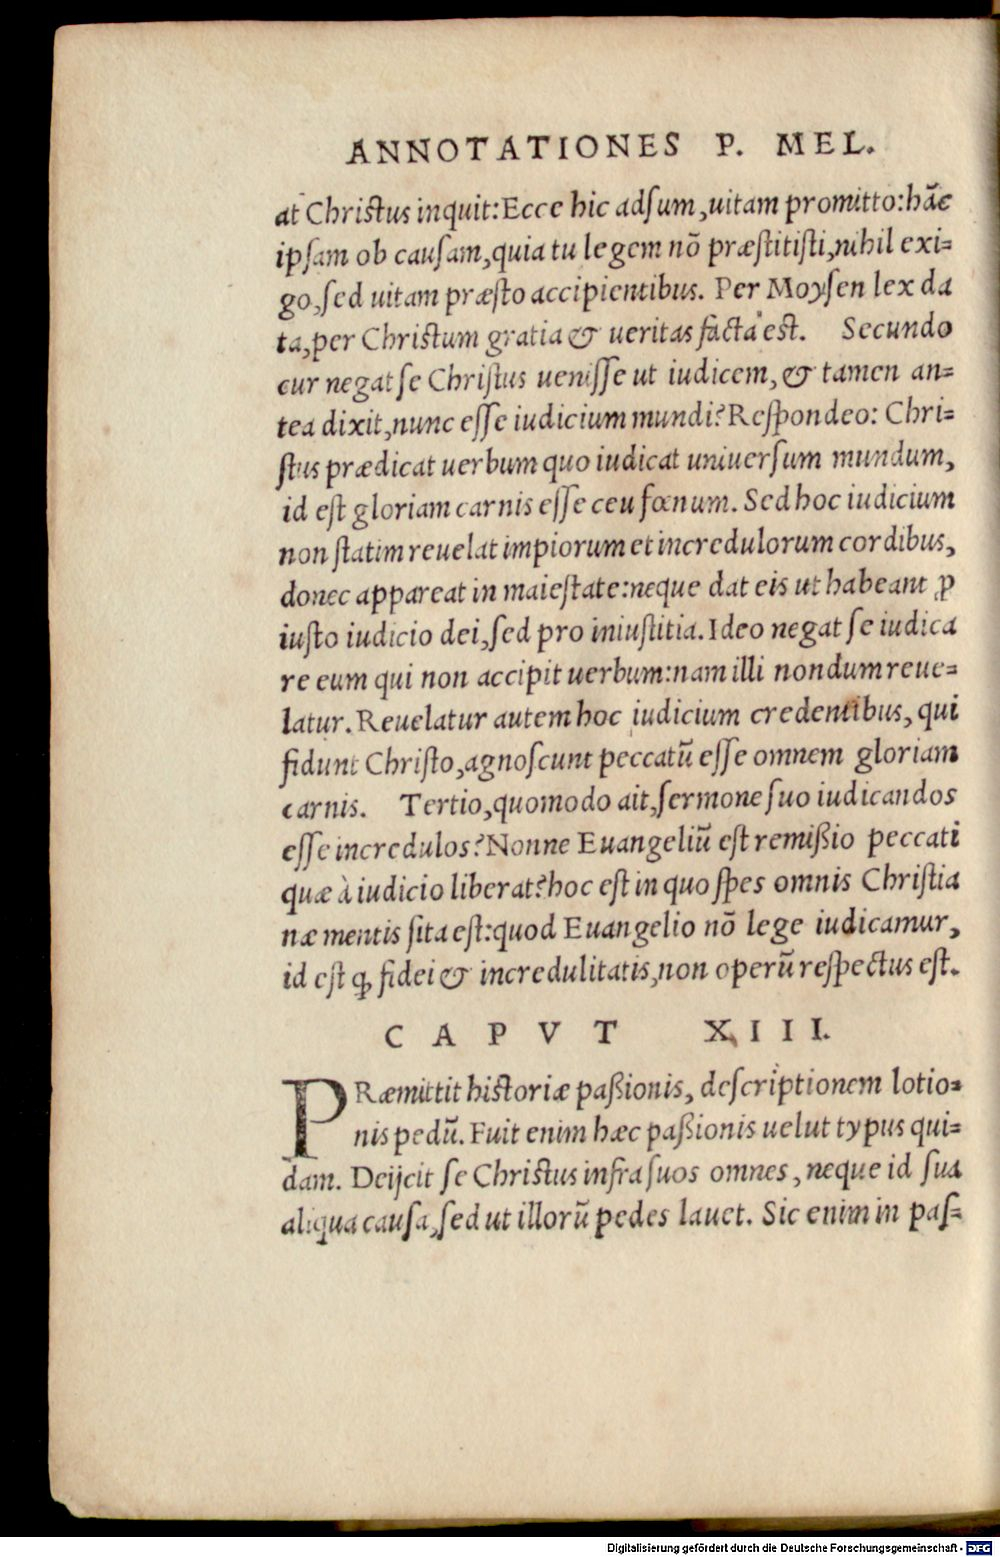 ANNOTATIONES P. MEL.
at Christus inquit: Ecce hic adſum, uitam promitto: hāc
ipſam ob cauſam, quia tu legem nō præſtitiſti, nihil exi=
go, ſed uitam præſto accipientibus. Per Moyſen lex da
ta, per Chriſtum gratia & ueritas facta eſt. Secundo
cur negat ſe Chriſtus ueniſſe ut iudicem, & tamen an=
tea dixit, nunc eſſe iudicium mundi? Reſpondeo: Chri=
ſtus prædicat uerbum quo iudicat uniuerſum mundum,
id eſt gloriam carnis eſſe ceu fœnum. Sed hoc iudicium
non ſtatim reuelat impiorum et incredulorum cordibus,
donec appareat in maieſtate: neque dat eis ut habeant ꝓ
iuſto iudicio dei, ſed pro iniuſtitia. Ideo negat ſe iudica
re eum qui non accipit uerbum: nam illi nondum reue=
latur. Reuelatur autem hoc iudicium credentibus, qui
fidunt Chriſto, agnoſcunt peccatū eſſe omnem gloriam
carnis. Tertio, quomodo ait, ſermone ſuo iudicandos
eſſe incredulos? Nonne Euangeliū eſt remißio peccati
quæ à iudicio liberat? hoc eſt in quo ſpes omnis Chriſtia
næ mentis ſita eſt: quod Euangelio nō lege iudicamur,
id eſt ꝙ fidei & incredulitatis, non operū reſpectus eſt.
CAPVT XIII.
PRæmittit hiſtoriæ paßionis, deſcriptionem lotio=
nis pedū. Fuit enim hæc paßionis uelut typus qui=
dam. Deijcit ſe Chriſtus infra ſuos omnes, neque id ſua
aliqua cauſa, ſed ut illorū pedes lauet. Sic enim in paſ=
Digitalisierung gefördert durch die Deutsche Forschungsgemeinschaft - DFG